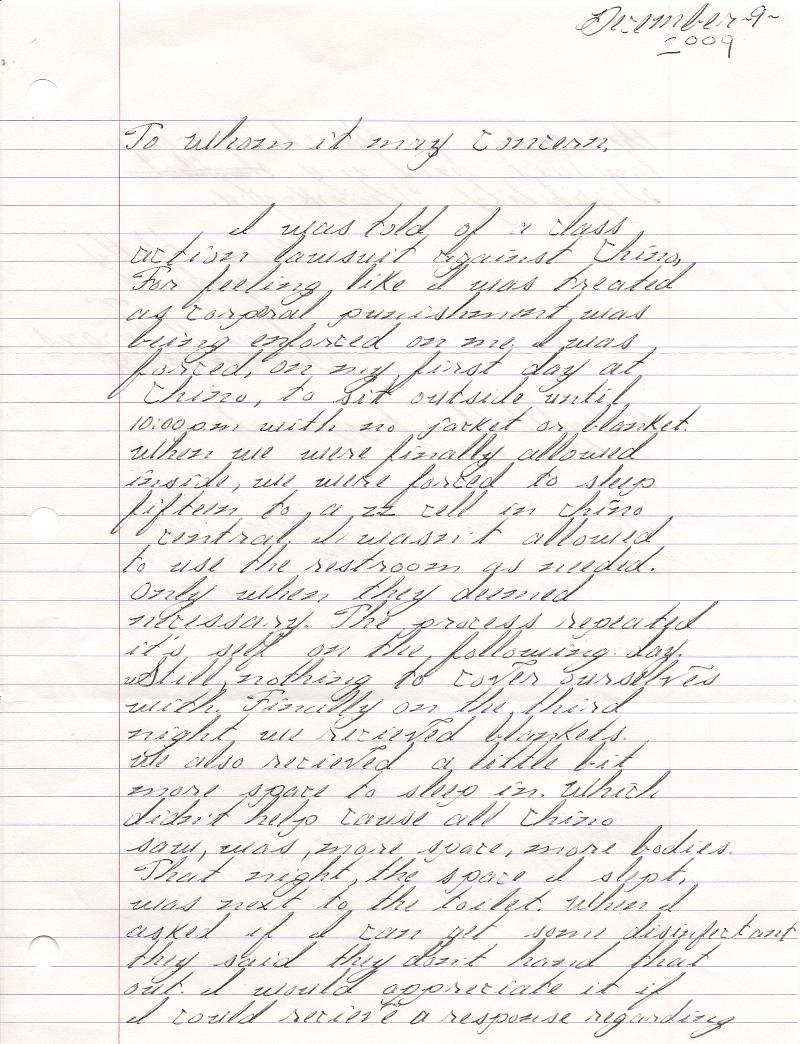 December-9-
2009
To whom it may concern,
I was told of a class
action lawsuit against Chino,
For feeling like I was treated
as corperal punishment was
being enforced on me, I was
forced, on my first day at
Chino, to sit outside until
10:00pm with no jacket or blanket.
When we were finally allowed
inside, we were forced to sleep
fifteen to a zz cell in chino
central. I wasn't allowed
to use the restroom as needed.
Only when they deemed
necessary. The process repeated
it's self on the following day.
Still, nothing to cover ourselves
with. Finally on the third
night we recieved blankets.
We also recieved a little bit
more space to sleep in. Which
didn't help cause all Chino
saw, was, more space, more bodies.
That night, the space I slept,
was next to the toilet. When I
asked if I can get some disinfectant
they said they don't hand that
out. I would appreciate it if
I could recieve a response regarding